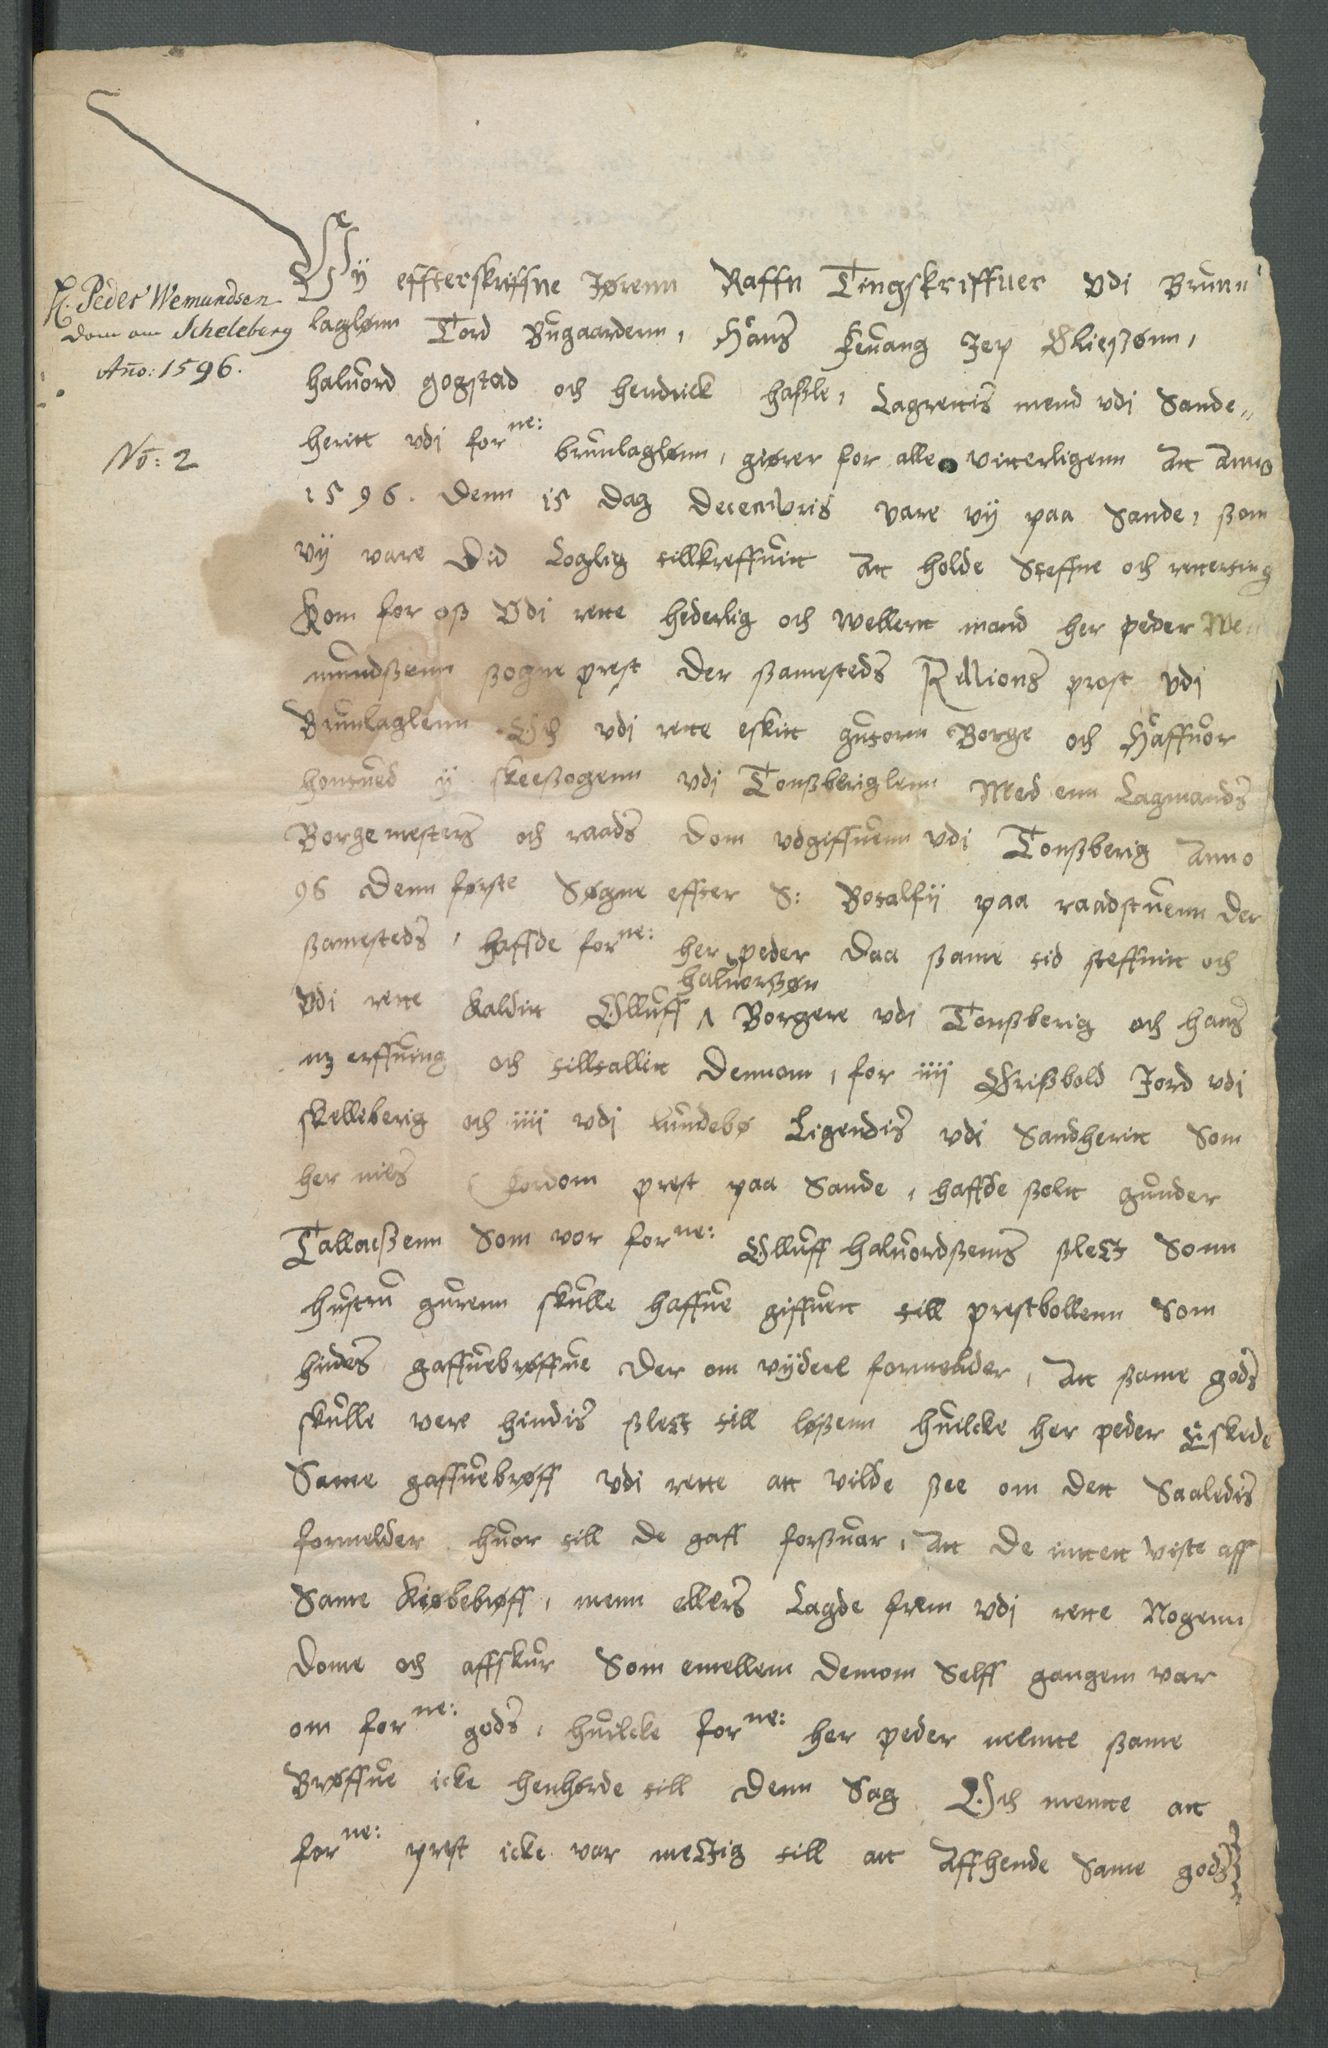 H. Peder Wemundsen
dom om Scheleberg
Año: 1596.
No: 2
Wÿ effterskriffne Jørenn Raffn Tingskriffuer vdi Brunn
laglønn Tord Bugaardenn, Hans Feuang Jep Oliesønn,
haluord gogstad och hendrick hasle, Lagrettis mend vdi Sande„
heritt vdi forne: brunlaglønn, giører for alle vitterligenn At Anno
1596. Denn 15 Dag Decembris vare vÿ paa Sande, som
vÿ vare Did Loglig tillkreffuitt At holde Steffne och retterting
Kom for oss Vdi rette hederlig och wellertt mand her peder We
mundssenn sogne prest der samesteds Pro prost vdi
Brunlaglenn Och vdi rette eskitt gutorm Borge och Haffuor
hontued ÿ skeesogenn vdi Tonssberiglenn Med enn Lagmands
Borgemesters och raads dom vdgiffuenn vdi Tonssberig Anno
96 Denn første Søgne effter S: Botalfÿ paa raadstuenn der
samesteds, haffde forne: her peder daa same tid steffnitt och
Vdi rette kaldit Olluff ʌ haluorssøn Borgere vdi Tonssberig och hans
m3 erffuing och tilltallitt dennom, for iiij Ørissbold Jord vdi
skelleberig och iiij vdi lundebø Ligendis vdi Sandheritt Som
her niels fordom prest paa Sande, haffde soltt gunder
Tallaessenn Som vor forne: Olluff haluordssenns slect Som
hustru gurenn skulle haffue giffuett till prestbollenn Som
hindes gaffuebrøffue der om vÿdere formelder, At same gods
skulle vere hindis slect till løssenn huilcke her peder Eskede
Same gaffuebrøff vdi rette att vilde see om dett Saaledis
formelder huor till de gaff forsuar, At de inttett viste aff
Same kiøbebrøff, menn ellers Lagde frem vdi rette Nogenn
dome och affskur Som emellem dennom Selff gangenn var
om forne: gods, huilcke forne: her peder mentte same
Brøffue icke henhørde till denn Sag Och mentte att
forne: prest icke var mectig till att Affhende Same gods